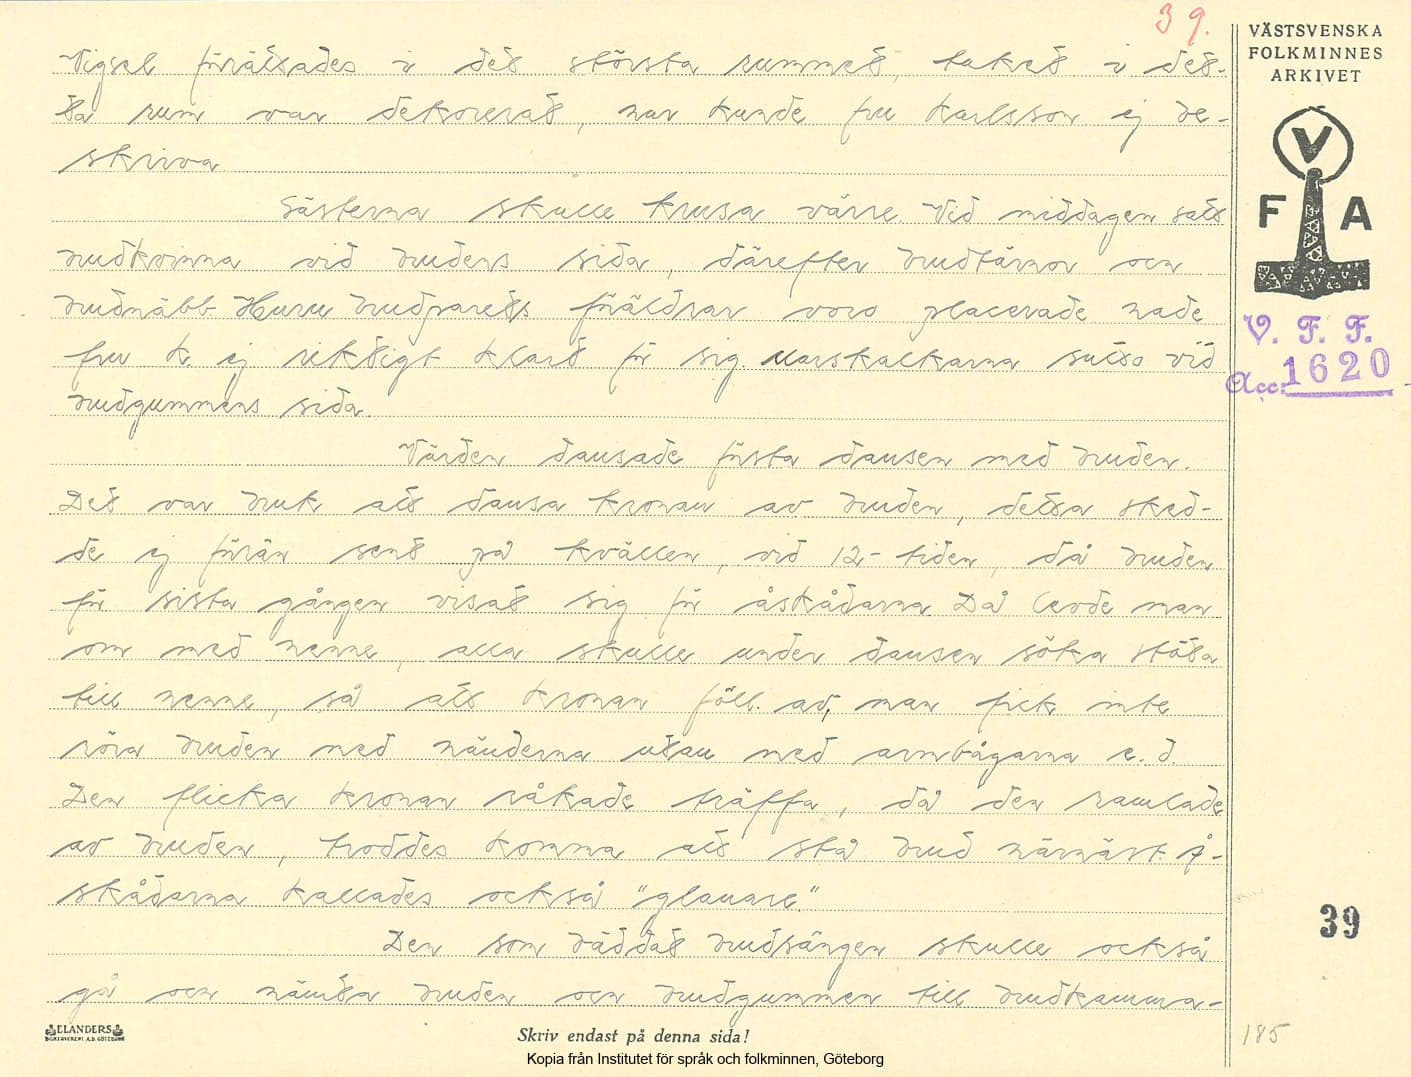 39.
VÄSTSVENSKA
FOLKMINNES
ARKIVET
V
F A
V. F. F.
Acc: 1620
Vigsel förrättades i det största rummet, taket i det-
ta rum var dekorerat, hur kunde fru Karlsson ej be-
skriva
Gästerna skulle krusa värre. Vid middagen satt
brudkvinna vid brudens sida, därefter brudtärnor och
brudnäbb. Huru brudparets föräldrar voro placerade hade
fru K. ej riktigt klart för sig. Marskalkarna sutto vid
brudgummens sida.
Värden dansade första dansen med bruden.
Det var bruk att dansa kronan av bruden, detta sked-
de ej förrän sent på kvällen, vid 12-tiden, då bruden
för sista gången visat sig för åskådarna. Då levde man
om med henne, alla skulle under dansen söka stöta
till henne, så att kronan föll av, man fick inte
röra bruden med händerna utan med armbågarna e. d.
Den flicka kronan råkade träffa, då den ramlade
av bruden, troddes komma att stå brud härnäst. Å-
skådarna kallades också "glanare."
Den som bäddat brudsängen skulle också
gå och hämta bruden och brudgummen till brudkamma-
39
185
ELANDERS
BOKTRYCKERI A.B. GÖTEBORG
Skriv endast på denna sida!
Kopia från Institutet för språk och folkminnen, Göteborg